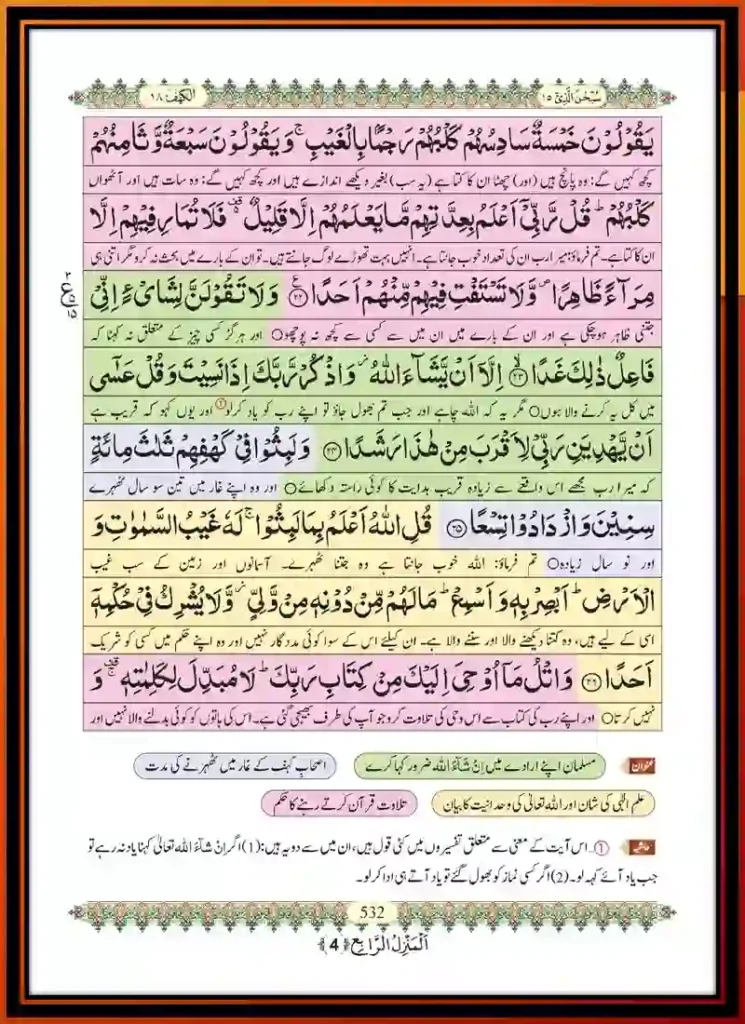 سُبْحٰنَ الَّذِیْۤ ١٥
الكهف ١٨
یَقُوْلُوْنَ خَمْسَةٌ سَادِسُهُمْ كَلْبُهُمْ رَجْمًۢا بِالْغَیْبِۚ وَ یَقُوْلُوْنَ سَبْعَةٌ وَّ ثَامِنُهُمْ
کچھ کہیں گے: وہ پانچ ہیں (اور) چھٹا ان کا کتا ہے (یہ سب) بغیر دیکھے اندازے ہیں اور کچھ کہیں گے: وہ سات ہیں اور آٹھواں
كَلْبُهُمْؕ قُلْ رَّبِّیْۤ اَعْلَمُ بِعِدَّتِهِمْ مَّا یَعْلَمُهُمْ اِلَّا قَلِیْلٌ ﱟ فَلَا تُمَارِ فِیْهِمْ اِلَّا
ان کا کتا ہے۔ تم فرماؤ: میرا رب ان کی تعداد خوب جانتا ہے۔ انہیں بہت تھوڑے لوگ جانتے ہیں۔ تو ان کے بارے میں بحث نہ کرو مگر اتنی ہی
مِرَآءً ظَاهِرًا۪ وَّ لَا تَسْتَفْتِ فِیْهِمْ مِّنْهُمْ اَحَدًا ﴿۲۲﴾ وَ لَا تَقُوْلَنَّ لِشَایْءٍ اِنِّیْ
جتنی ظاہر ہوچکی ہے اور ان کے بارے میں ان میں سے کسی سے کچھ نہ پوچھو○ اور ہرگز کسی چیز کے متعلق نہ کہنا کہ
فَاعِلٌ ذٰلِكَ غَدًا ﴿۲۳﴾ اِلَّاۤ اَنْ یَّشَآءَ اللّٰهُ٘ وَ اذْكُرْ رَّبَّكَ اِذَا نَسِیْتَ وَ قُلْ عَسٰۤى
میں کل یہ کرنے والا ہوں○ مگر یہ کہ اللہ چاہے اور جب تم بھول جاؤ تو اپنے رب کو یاد کرلو① اور یوں کہو کہ قریب ہے
اَنْ یَّهْدِیَنِ رَبِّیْ لِاَقْرَبَ مِنْ هٰذَا رَشَدًا ﴿۲۴﴾ وَ لَبِثُوْا فِیْ كَهْفِهِمْ ثَلٰثَ مِائَةٍ
کہ میرا رب مجھے اس واقعے سے زیادہ قریب ہدایت کا کوئی راستہ دکھائے○ اور وہ اپنے غار میں تین سو سال ٹھہرے
سِنِیْنَ وَ ازْدَادُوْا تِسْعًا ﴿۲۵﴾ قُلِ اللّٰهُ اَعْلَمُ بِمَا لَبِثُوْاۚ لَهٗ غَیْبُ السَّمٰوٰتِ وَ
اور نو سال زیادہ○ تم فرماؤ: اللہ خوب جانتا ہے وہ جتنا ٹھہرے۔ آسمانوں اور زمین کے سب غیب
الْاَرْضِؕ اَبْصِرْ بِهٖ وَ اَسْمِعْؕ مَا لَهُمْ مِّنْ دُوْنِهٖ مِنْ وَّلِیٍّ٘ وَّ لَا یُشْرِكُ فِیْ حُكْمِهٖۤ
اسی کے لیے ہیں، وہ کتنا دیکھنے والا اور سننے والا ہے۔ ان کیلئے اس کے سوا کوئی مددگار نہیں اور وہ اپنے حکم میں کسی کو شریک
اَحَدًا ﴿۲۶﴾ وَ اتْلُ مَاۤ اُوْحِیَ اِلَیْكَ مِنْ كِتَابِ رَبِّكَؕ لَا مُبَدِّلَ لِكَلِمٰتِهٖ ﱟ وَ
نہیں کرتا○ اور اپنے رب کی کتاب سے اس وحی کی تلاوت کرو جو آپ کی طرف بھیجی گئی ہے۔ اس کی باتوں کو کوئی بدلنے والا نہیں اور
عنوان مسلمان اپنے ارادے میں اِنْ شَآءَ اللہ ضرور کہا کرے اصحابِ کہف کے غار میں ٹھہرنے کی مدت
علمِ الٰہی کی شان اور اللہ تعالٰی کی وحدانیت کا بیان تلاوتِ قرآن کرتے رہنے کا حکم
حاشیہ ①... اس آیت کے معنی سے متعلق تفسیروں میں کئی قول ہیں، ان میں سے دو یہ ہیں: (1) اگر اِنْ شَآءَ اللہ تعالٰی کہنا یاد نہ رہے تو
جب یاد آئے کہہ لو۔ (2) اگر کسی نماز کو بھول گئے تو یاد آتے ہی ادا کرلو۔
532
اَلْمَنْزِلُ الرَّابِع ﴿4﴾